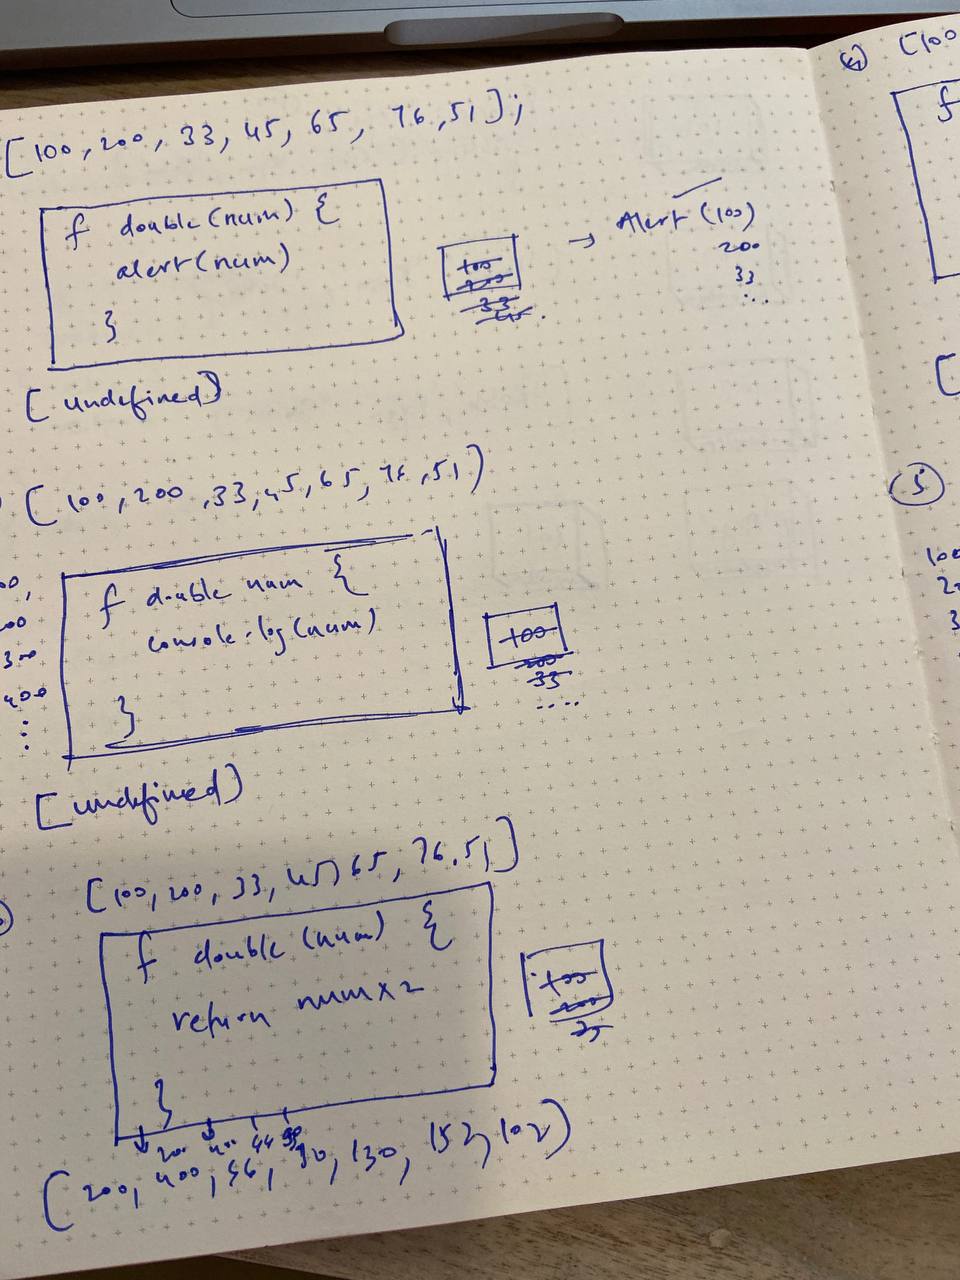 [100, 200, 33, 45, 65, 76, 51];
f double(num) {
alert(num)
}
100
200
33
45.
→ Alert (100)
200
33
...
[undefined]
[100, 200, 33, 45, 65, 76, 51]
00,
00
300
400
⋮
f double num {
console.log(num)
}
100
200
33
....
[undefined]
[100, 200, 33, 45, 65, 76, 51]
f double (num) {
return num x 2
}
100
200
200 400
[200, 400, 90, 130, 152, 102]
4) [100
f
[
5
100
2
3